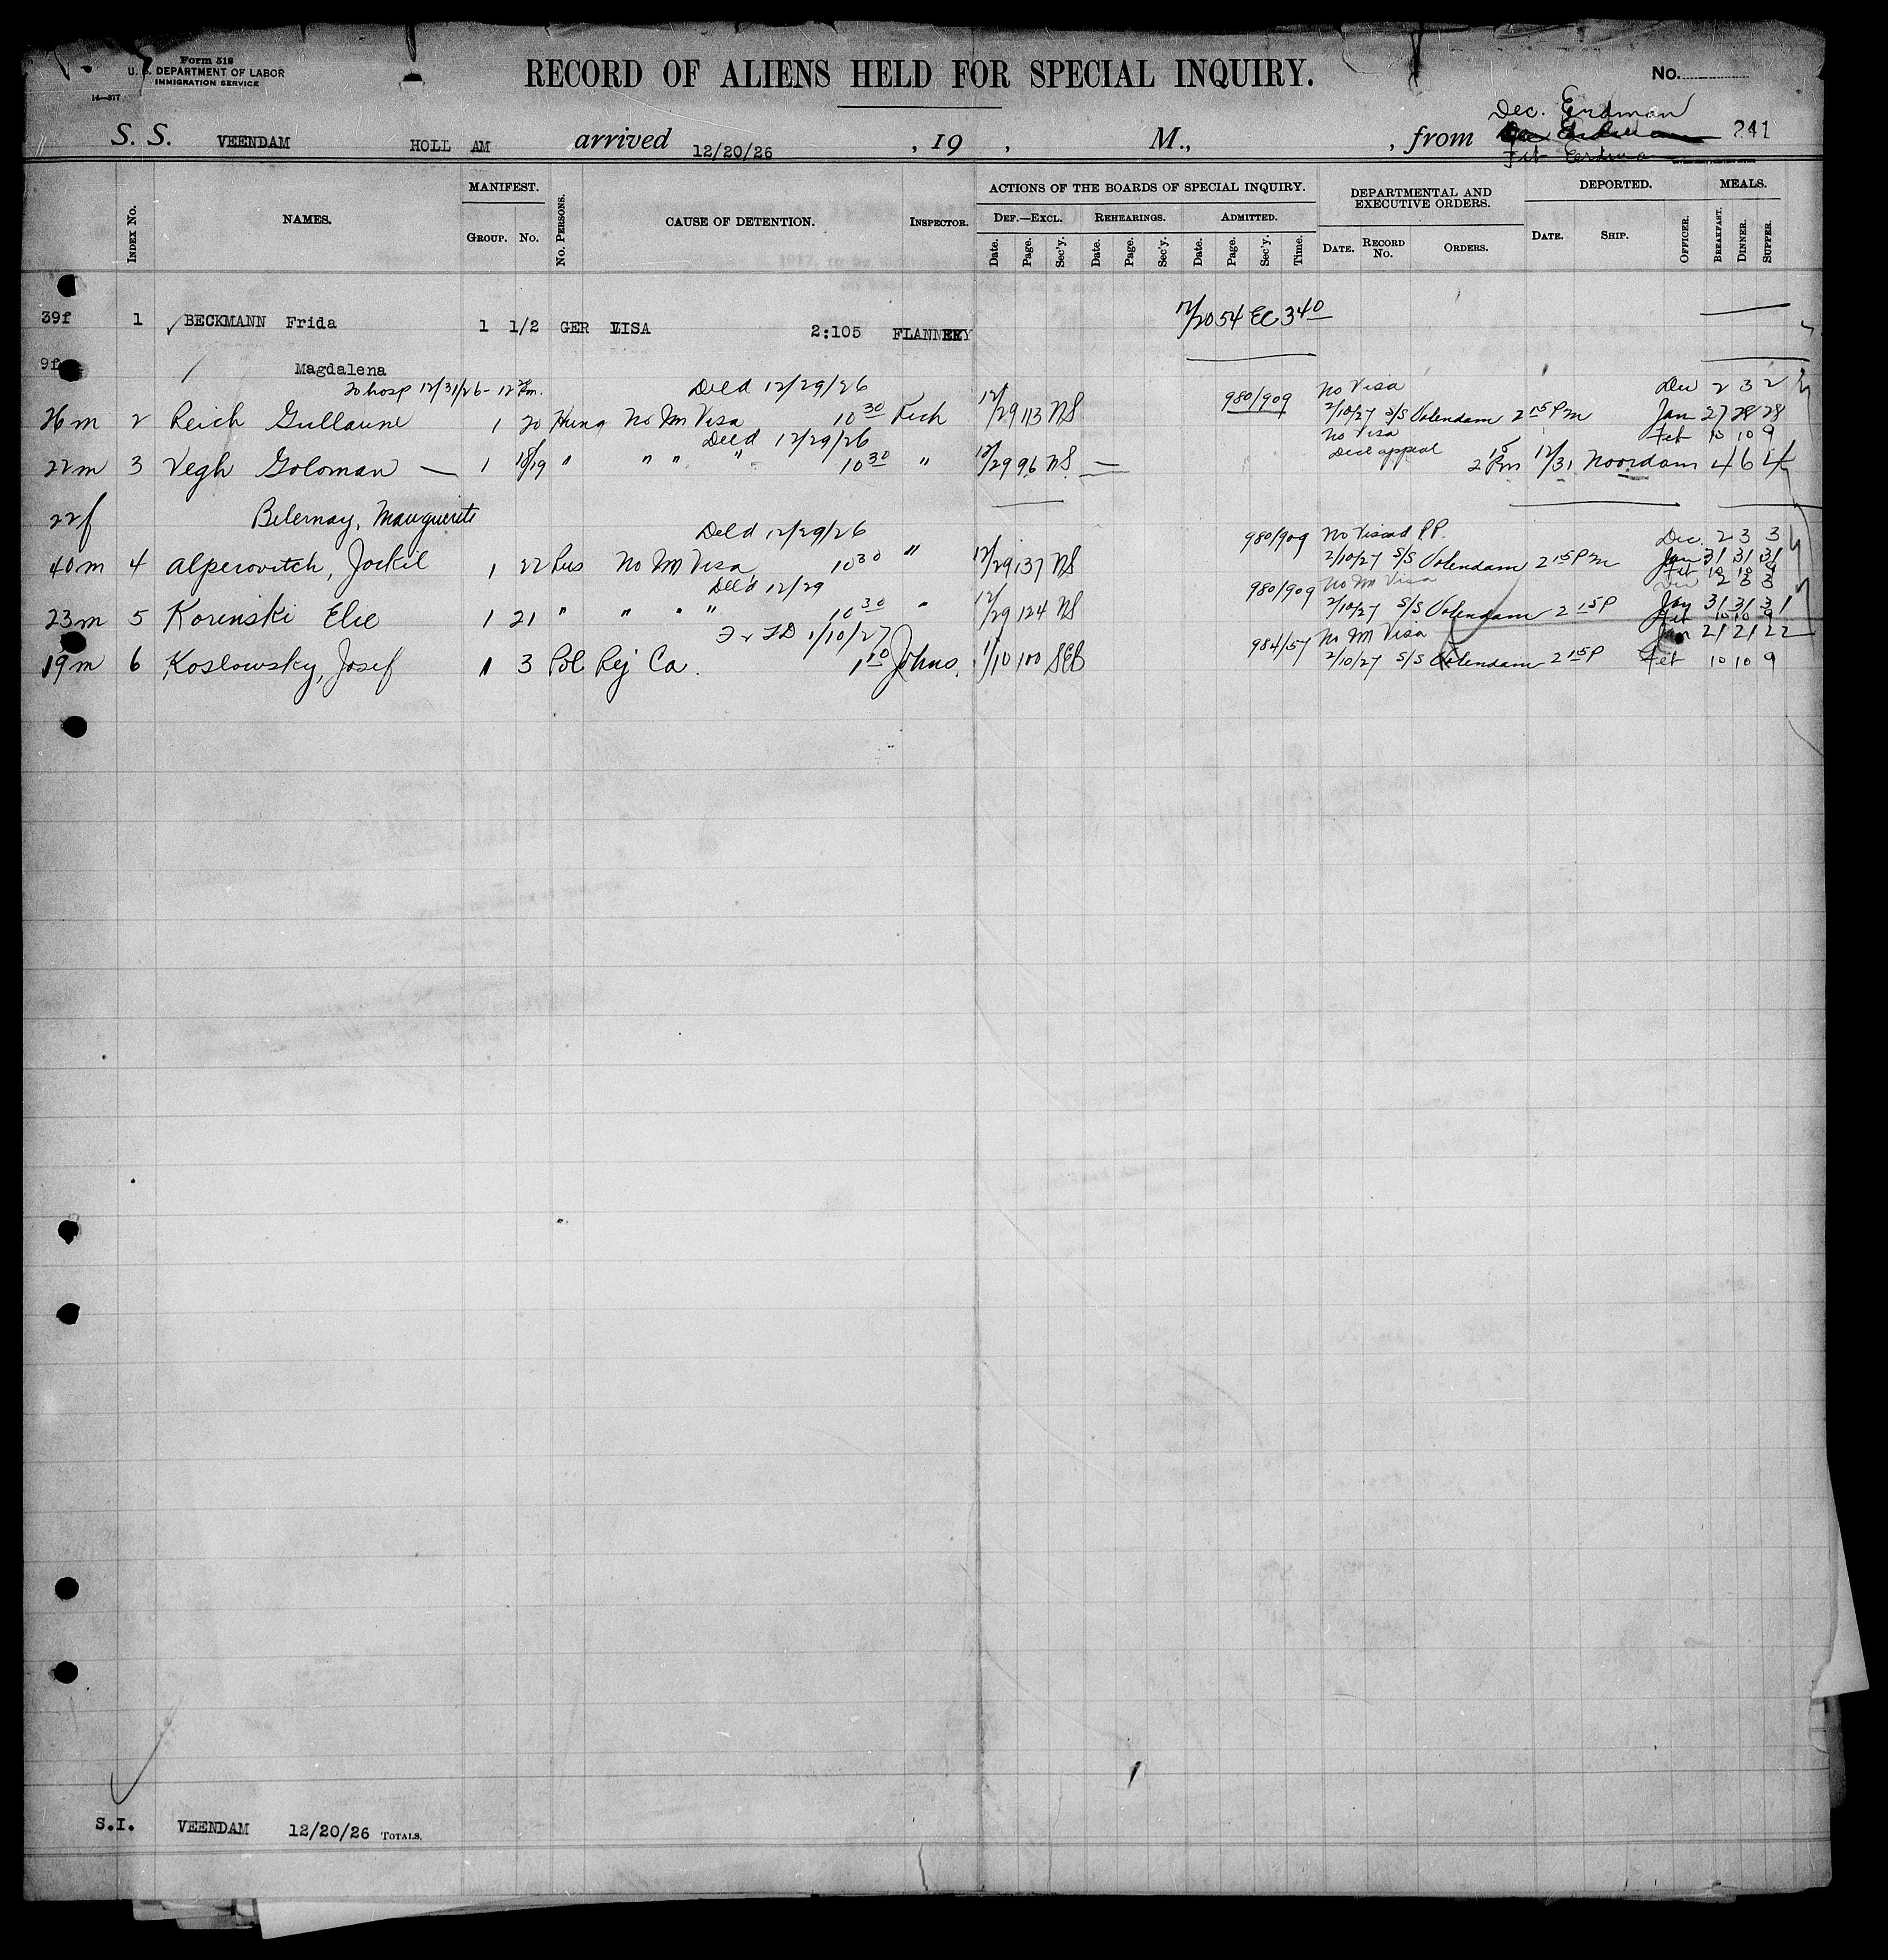 Form 518
U. S. DEPARTMENT OF LABOR
IMMIGRATION SERVICE
14—577
RECORD OF ALIENS HELD FOR SPECIAL INQUIRY.
No.
Dec. Erdman
S. S. VEENDAM HOLL AM arrived 12/20/26 , 19 , M., , from 241
INDEX No. NAMES. MANIFEST. GROUP. No. No. PERSONS. CAUSE OF DETENTION. INSPECTOR. ACTIONS OF THE BOARDS OF SPECIAL INQUIRY. DEF.—EXCL. Date. Page. Sec'y. REHEARINGS. Date. Page. Sec'y. ADMITTED. Date. Page. Sec'y. Time. DEPARTMENTAL AND EXECUTIVE ORDERS. DATE. RECORD No. ORDERS. DEPORTED. DATE. SHIP. OFFICER. MEALS. BREAKFAST. DINNER. SUPPER.
39f 1 BECKMANN Frida 1 1/2 GER VISA 2:105 FLANNERY 12/20 54 EC 3 40
9f Magdalena
To hosp 12/31/26 - Def'd 12/29/26 No Visa Dec 2 3 2
26m 2 Reich Gullaune 1 20 Hung No Im Visa 10 30 Rich 12/29 113 NS 980/909 2/10/27 S/S Volendam 2 15 PM Jan 27 28 28
Def'd 12/29/26 No Visa Feb 10 10 9
22m 3 Vegh Goloman — 1 18/19 " " " " 10 30 " 12/29 96 NS — appeal 2 15 PM 12/31 Noordam 4 6 4
22f Belernay, Marguerite
Def'd 12/29/26 No Visaed P.P. Dec. 2 3 3
40m 4 Alperovitch, Jockil 1 22 Rus No Im Visa 10 30 " 12/29 137 NS 980/909 2/10/27 S/S Volendam 2 15 PM Jan 31 31 31
Def'd 12/29 No Im Visa Feb 10 10 9
23m 5 Korinski Elie 1 21 " " " " 10 30 " 12/29 124 NS 980/909 2/10/27 S/S Volendam 2 15 P Jan 31 31 31
1/10/27 No Im Visa Jan 21 21 22
19m 6 Koslowsky, Josef 1 3 Pol Rej Ca. 1 10 Johns. 1/10 100 SEB 984/57 2/10/27 S/S Volendam 2 15 P Feb 10 10 9
S.I. VEENDAM 12/20/26 TOTALS.